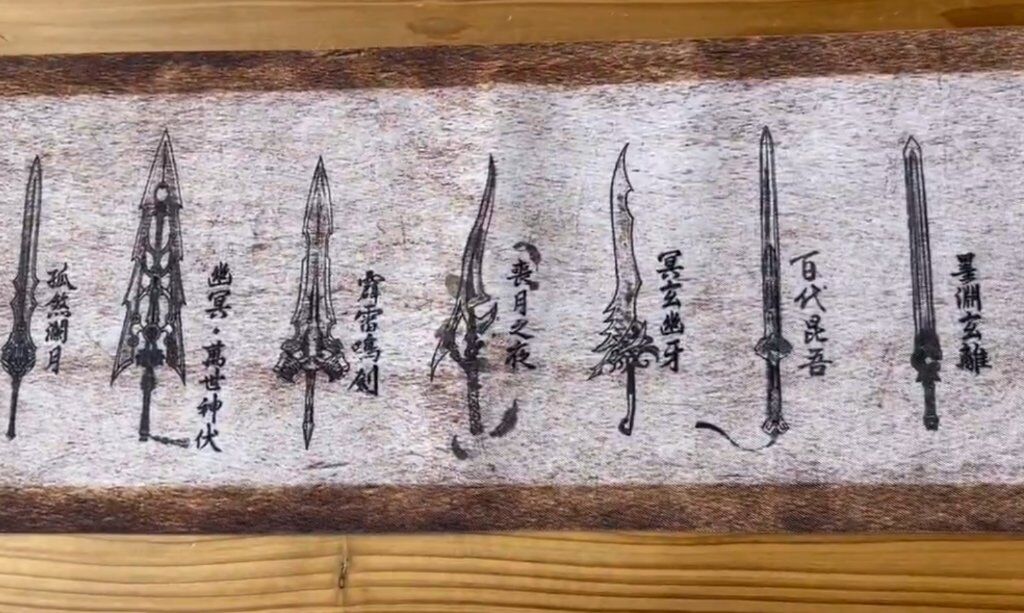 孤煞瀾月
幽冥·萬世神伏
霄雷鳴劍
喪月之夜
冥玄幽牙
百代昆吾
星淵玄離